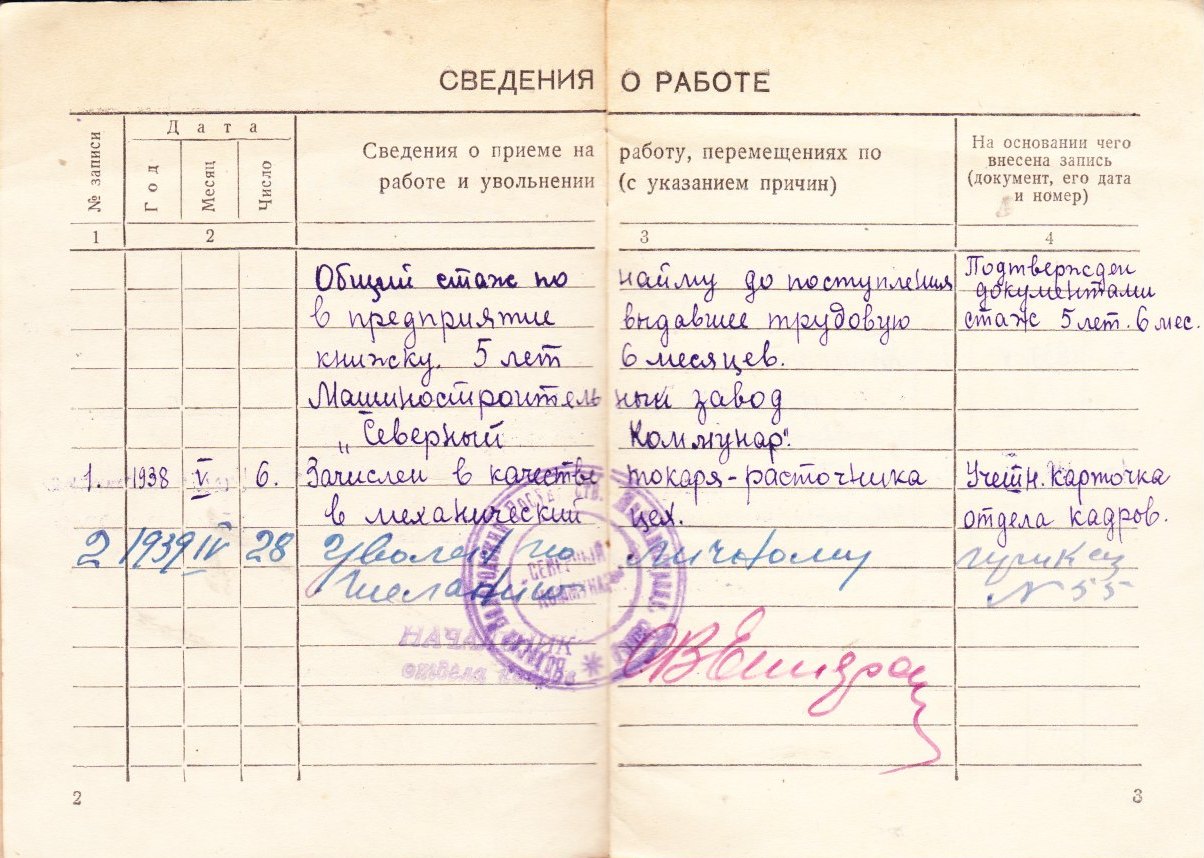 СВЕДЕНИЯ О РАБОТЕ
№ записи
Дата
Год
Месяц
Число
Сведения о приеме на работу, перемещениях по
работе и увольнении (с указанием причин)
На основании чего
внесена запись
(документ, его дата
и номер)
1 2 3 4
Общий стаж по найму до поступления
в предприятие выдавшее трудовую
книжку. 5 лет 6 месяцев.
Подтвержден
документами
стаж 5 лет. 6 мес.
Машиностроительный завод
„Северный Коммунар".
1. 1938 V 6. Зачислен в качестве токаря-расточника
в механический цех.
Учетн. Карточка
отдела кадров.
2 1939 IV 28 Уволен по личному
желанию
№ 55
СЕВЕРНЫЙ
КОММУНАР
НАЧАЛЬНИК
отдела кадров
2
3